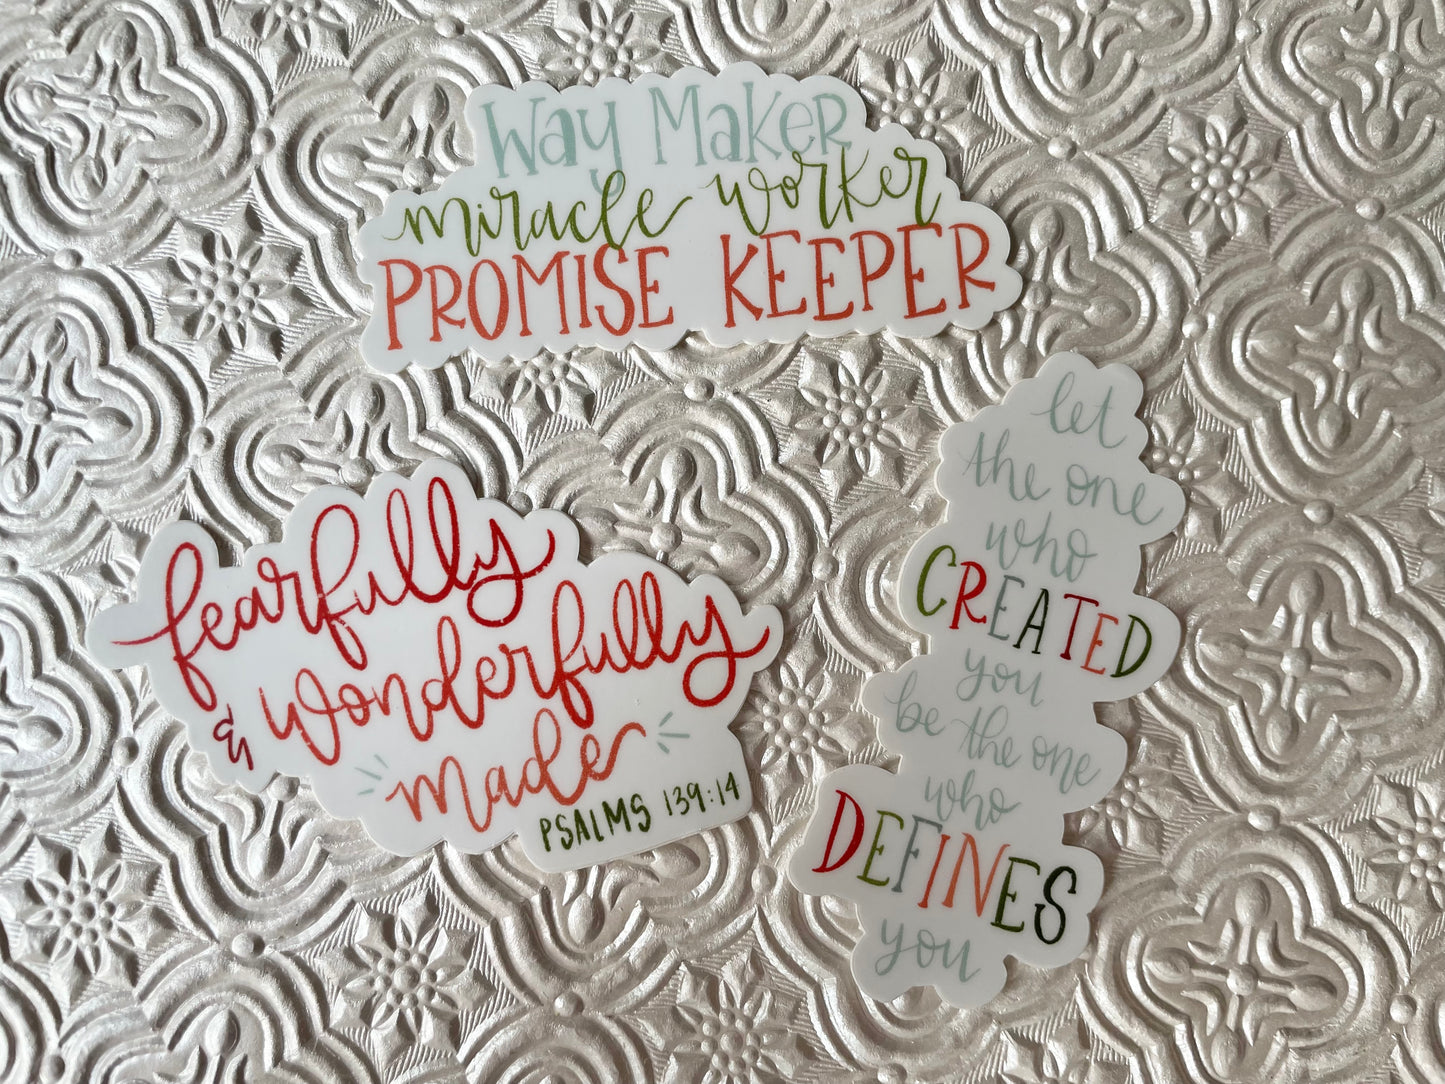 Way Maker
miracle worker
PROMISE KEEPER
fearfully
& wonderfully
made
PSALMS 139:14
let
the one
who
CREATED
you
be the one
who
DEFINES
you